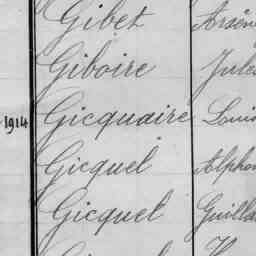 Gibet Arsèn
Giboire Jules
1914 Gicquaire Louis
Gicquel Alphon
Gicquel Guilla